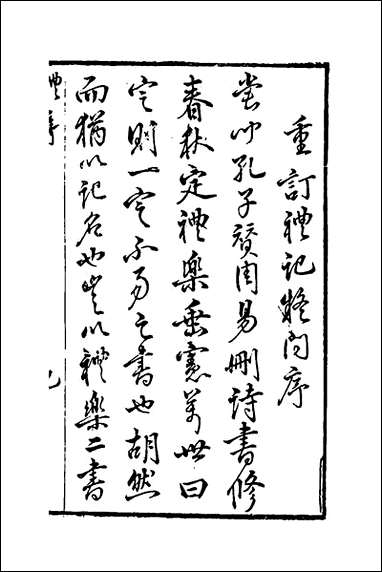 重訂禮記疑問序
嘗聞孔子贊周易刪詩書修
春秋定禮樂垂憲萬世曰
定則一定不易之書也胡然
而猶以記名也豈以禮樂二書
禮 序